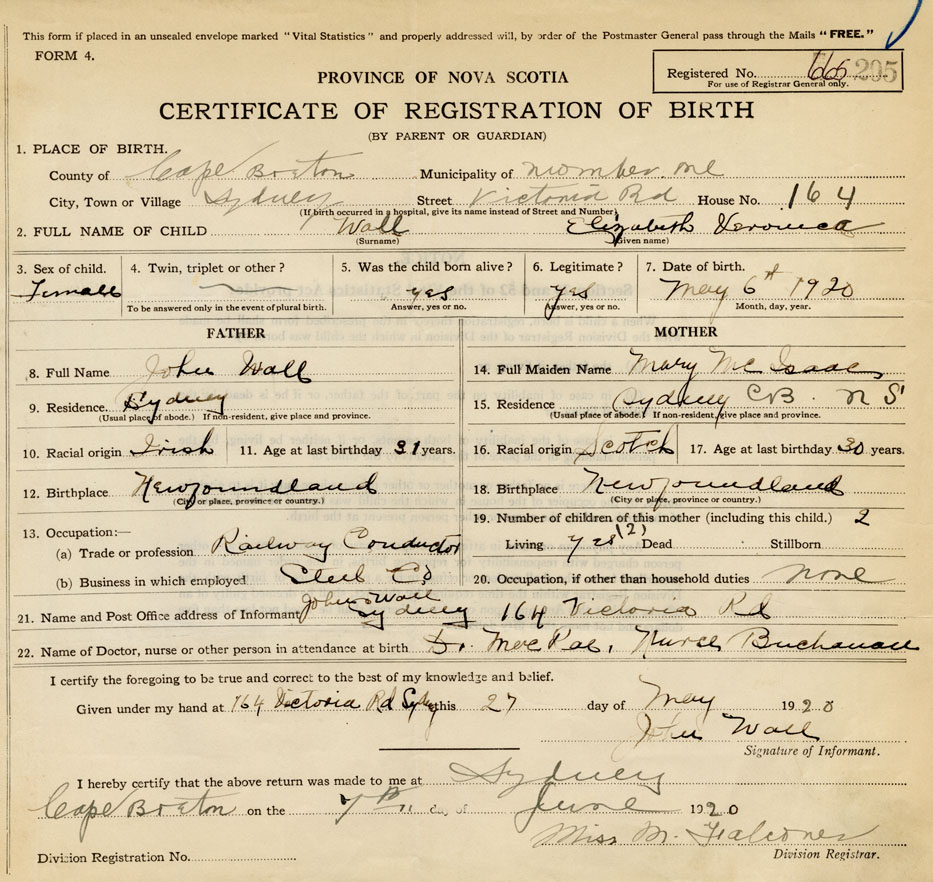 This form if placed in an unsealed envelope marked "Vital Statistics" and properly addressed will, by order of the Postmaster General pass through the Mails "FREE."
FORM 4.
PROVINCE OF NOVA SCOTIA
Registered No. 205
For use of Registrar General only.
CERTIFICATE OF REGISTRATION OF BIRTH
(BY PARENT OR GUARDIAN)
1. PLACE OF BIRTH.
County of Cape Breton Municipality of
City, Town or Village Sydney Street Victoria Rd House No. 164
(If birth occurred in a hospital, give its name instead of Street and Number)
2. FULL NAME OF CHILD Wall Elizabeth Veronica
(Surname) (Given name)
3. Sex of child. 4. Twin, triplet or other? 5. Was the child born alive? 6. Legitimate? 7. Date of birth.
Femall yes yes May 6th 1920
To be answered only in the event of plural birth. Answer, yes or no. Answer, yes or no. Month, day, year.
FATHER MOTHER
8. Full Name John Wall 14. Full Maiden Name Mary Mc Isaac
9. Residence. Sydney 15. Residence Sydney CB. N S
(Usual place of abode.) If non-resident, give place and province. (Usual place of abode.) If non-resident, give place and province.
10. Racial origin Irish 11. Age at last birthday 31 years. 16. Racial origin Scotch 17. Age at last birthday 30 years.
12. Birthplace Newfoundland 18. Birthplace Newfoundland
(City or place, province or country.) (City or place, province or country.)
13. Occupation:— 19. Number of children of this mother (including this child.) 2
(a) Trade or profession Railway Conductor Living yes (2) Dead Stillborn
(b) Business in which employed Steel Co 20. Occupation, if other than household duties none
21. Name and Post Office address of Informant John Wall Sydney 164 Victoria Rd
22. Name of Doctor, nurse or other person in attendance at birth Dr. MacRae, Nurse Buchanan
I certify the foregoing to be true and correct to the best of my knowledge and belief.
Given under my hand at 164 Victoria Rd Sydney this 27 day of May 1920
John Wall
Signature of Informant.
I hereby certify that the above return was made to me at Sydney
Cape Breton on the 7th day of June 1920
Miss M. Falconer
Division Registrar.
Division Registration No.